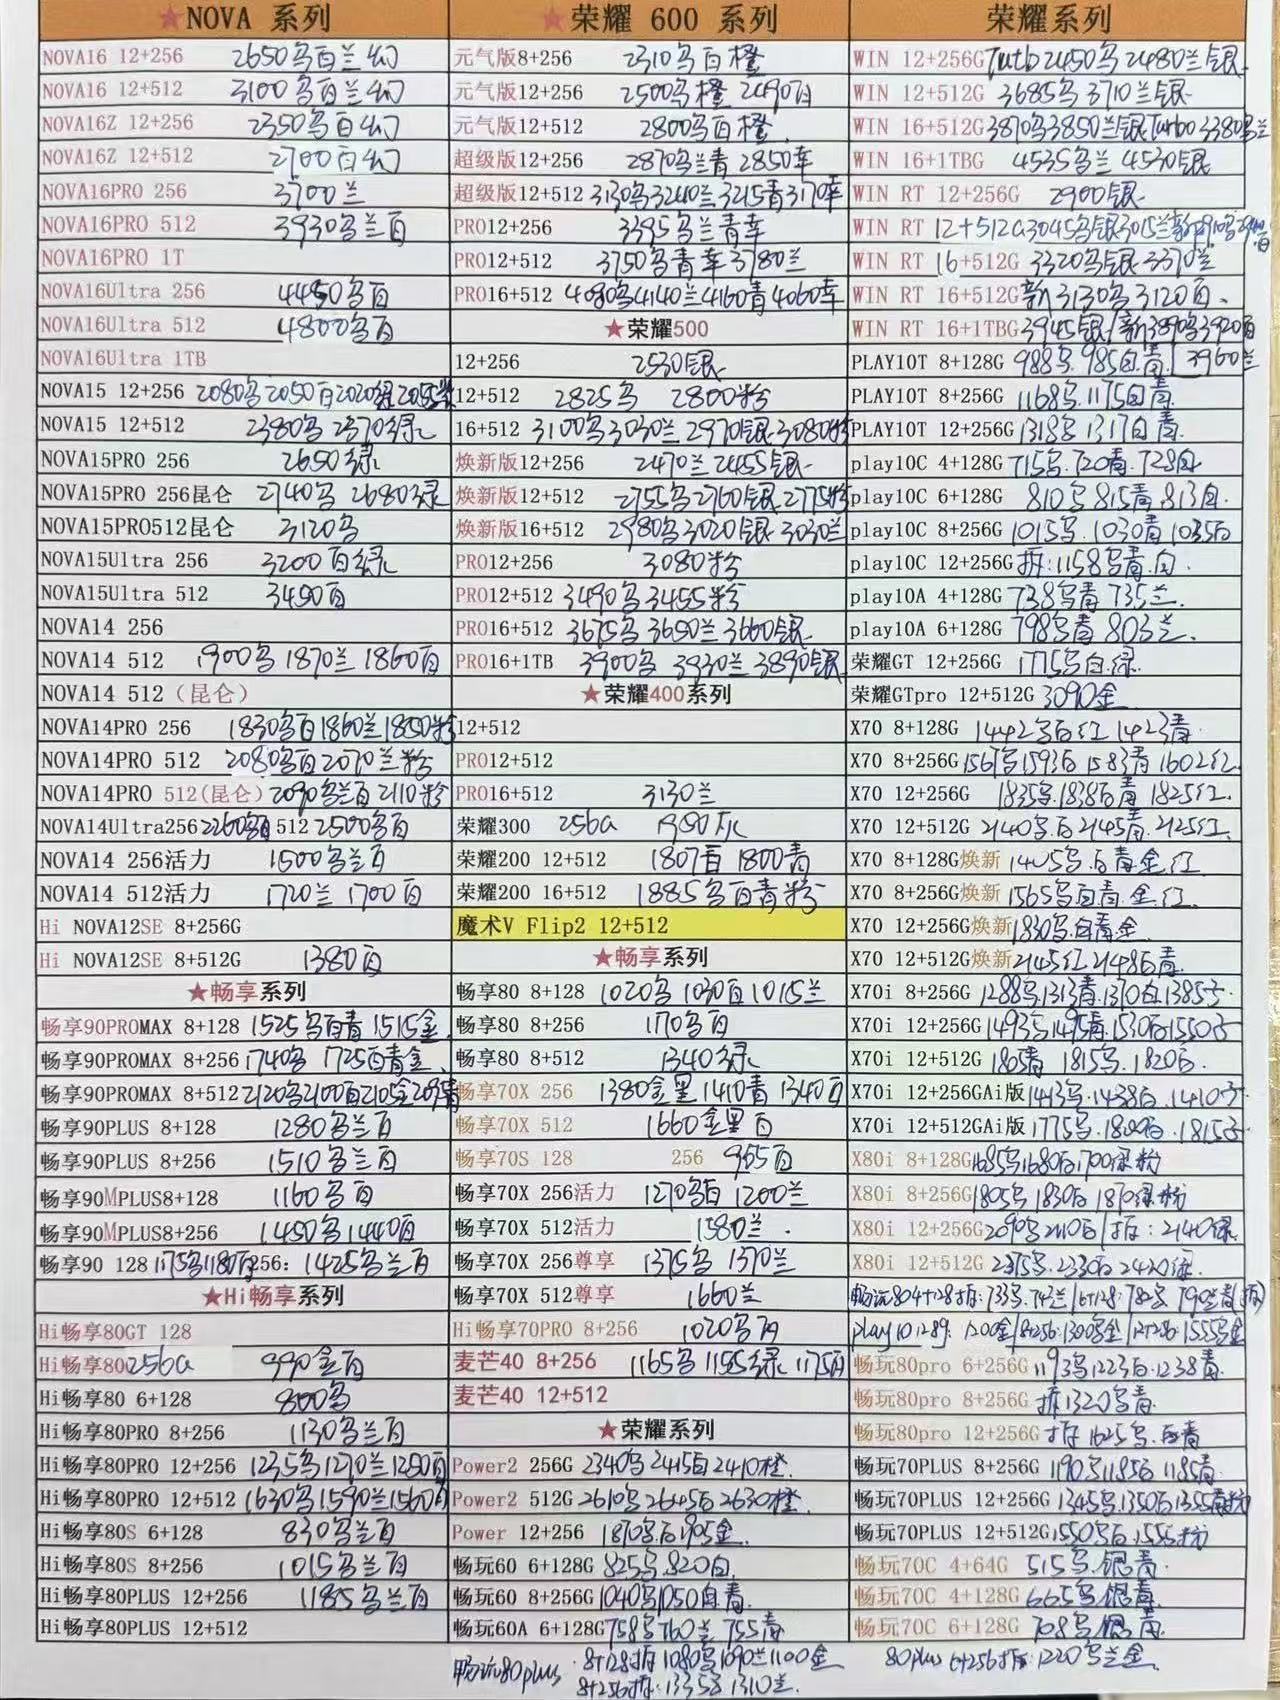 ★NOVA 系列
NOVA16 12+256 2650乌百兰幻
NOVA16 12+512 3100乌百兰幻
NOVA16Z 12+256 2350乌百幻
NOVA16Z 12+512 2700百幻
NOVA16PRO 256 3700兰
NOVA16PRO 512 3930乌兰百
NOVA16PRO 1T
NOVA16Ultra 256 4450乌百
NOVA16Ultra 512 4800乌百
NOVA16Ultra 1TB
NOVA15 12+256 2080乌2050百2020绿2055紫
NOVA15 12+512 2380乌2370绿
NOVA15PRO 256 2650绿
NOVA15PRO 256昆仑 2740乌 2680绿
NOVA15PRO512昆仑 3120乌
NOVA15Ultra 256 3200百绿
NOVA15Ultra 512 3450百
NOVA14 256
NOVA14 512 1900乌1870兰1860百
NOVA14 512（昆仑）
NOVA14PRO 256 1830乌百1860兰1850粉
NOVA14PRO 512 2080乌百2070兰粉
NOVA14PRO 512(昆仑) 2090乌兰百2110粉
NOVA14Ultra256 2260乌百 512 2500乌百
NOVA14 256活力 1500乌兰百
NOVA14 512活力 1720兰 1700百
Hi NOVA12SE 8+256G
Hi NOVA12SE 8+512G 1380百
★畅享系列
畅享90PROMAX 8+128 1525乌百青1515金
畅享90PROMAX 8+256 1740乌 1725百青金
畅享90PROMAX 8+512 2120乌2100百2105金2095青
畅享90PLUS 8+128 1280乌兰百
畅享90PLUS 8+256 1510乌兰百
畅享90MPLUS8+128 1160乌百
畅享90MPLUS8+256 1450乌1440百
畅享90 128 1175乌1180百 256: 1425乌兰百
★Hi畅享系列
Hi畅享80GT 128
Hi畅享80 256G 990金百
Hi畅享80 6+128 800乌
Hi畅享80PRO 8+256 1130乌兰百
Hi畅享80PRO 12+256 1235乌1270兰1250百
Hi畅享80PRO 12+512 1630乌1590兰1560百
Hi畅享80S 6+128 830乌兰百
Hi畅享80S 8+256 1015乌兰百
Hi畅享80PLUS 12+256 1185乌兰百
Hi畅享80PLUS 12+512
★荣耀 600 系列
元气版8+256 2310乌白橙
元气版12+256 2500乌橙 2490百
元气版12+512 2800乌百橙
超级版12+256 2870乌兰青 2850幸
超级版12+512 3130乌3240兰3215青3170幸
PRO12+256 3395乌兰青幸
PRO12+512 3750乌青幸3780兰
PRO16+512 4080乌4140兰4160青4060幸
★荣耀500
12+256 2530银
12+512 2825乌 2800粉
16+512 3100乌3030兰2970银3080粉
焕新版12+256 2470兰2455银
焕新版12+512 2755乌2760银2775粉
焕新版16+512 2980乌3020银3030兰
PRO12+256 3080粉
PRO12+512 3490乌3455粉
PRO16+512 3675乌3650兰3660银
PRO16+1TB 3900乌 3930兰3890银
★荣耀400系列
12+512
PRO12+512
PRO16+512 3130兰
荣耀300 256G 1980灰
荣耀200 12+512 1807百 1800青
荣耀200 16+512 1885乌百青粉
魔术V Flip2 12+512
★畅享系列
畅享80 8+128 1020乌1030百1015兰
畅享80 8+256 1170乌百
畅享80 8+512 1340绿
畅享70X 256 1380金黑1410青1340百
畅享70X 512 1660金黑百
畅享70S 128 256 955百
畅享70X 256活力 1270乌百1200兰
畅享70X 512活力 1580兰
畅享70X 256尊享 1375乌 1370兰
畅享70X 512尊享 1660兰
Hi畅享70PRO 8+256 1020乌百
麦芒40 8+256 1165乌1155绿1175百
麦芒40 12+512
★荣耀系列
Power2 256G 2340乌2415白2410橙
Power2 512G 2610乌2645白2630橙
Power 12+256 1870乌白1905金
畅玩60 6+128G 825乌820白
畅玩60 8+256G 1040乌1050白青
畅玩60A 6+128G 758乌760兰755青
畅玩80plus 8+128拆1080乌1090兰1100金
8+256拆:1335乌1310兰
荣耀系列
WIN 12+256G Turbo2450乌2480兰银
WIN 12+512G 3685乌3710兰银
WIN 16+512G 3870乌3850兰银Turbo3380乌兰
WIN 16+1TBG 4535乌兰 4530银
WIN RT 12+256G 2900银
WIN RT 12+512G3045乌银3015兰新2910乌2940百
WIN RT 16+512G 3320乌银3370兰
WIN RT 16+512G新3130乌3120百
WIN RT 16+1TBG3945银/新3890乌3920百
PLAY10T 8+128G 988乌.985白青 3960兰
PLAY10T 8+256G 1168乌.1175白青
PLAY10T 12+256G1318乌 1317白青
play10C 4+128G 715乌.720青.728白
play10C 6+128G 810乌815青.813白
play10C 8+256G 1015乌.1030青1035白
play10C 12+256G拆:1158乌青.白
play10A 4+128G 738乌青 735兰
play10A 6+128G 798乌青 803兰
荣耀GT 12+256G 1775乌白.绿
荣耀GTpro 12+512G 3090金
X70 8+128G 1442乌白红 1423青
X70 8+256G 1567乌1593白1583青1602红
X70 12+256G 1835乌.1838白青1825红
X70 12+512G 2140乌.白2145青.2125红
X70 8+128G焕新 1405乌.白青金.红
X70 8+256G焕新 1565乌白青.金.红
X70 12+256G焕新1830乌.白青金
X70 12+512G焕新2145红2148白青
X70i 8+256G 1288乌1313青1370白1385子
X70i 12+256G1493乌1495青1530白1550子
X70i 12+512G 1805青 1815乌.1820白
X70i 12+256GAi版1413乌.1438白.1410子
X70i 12+512GAi版1775乌.1800白.1815子
X80i 8+128G1685乌1680白1700绿粉
X80i 8+256G1805乌1830白1870绿粉
X80i 12+256G2090乌2110白/拆:2140绿
X80i 12+512G 2375乌.2330白2420绿
畅玩80 4+128拆:733乌.743兰/6+128:782乌790兰青(拆)
play10 128g: 1200金/8+256:1300乌金/12+256:1555乌金
畅玩80pro 6+256G1193乌1223白.1238青
畅玩80pro 8+256G 拆1320乌青
畅玩80pro 12+256G 拆1625乌.白青
畅玩70PLUS 8+256G1190乌1185白1185青
畅玩70PLUS 12+256G1345乌1350白1355青粉
畅玩70PLUS 12+512G1550乌白1555粉
畅玩70C 4+64G 515乌.银青
畅玩70C 4+128G 665乌银青
畅玩70C 6+128G 708乌银青
80plus 6+256拆:1220乌兰金